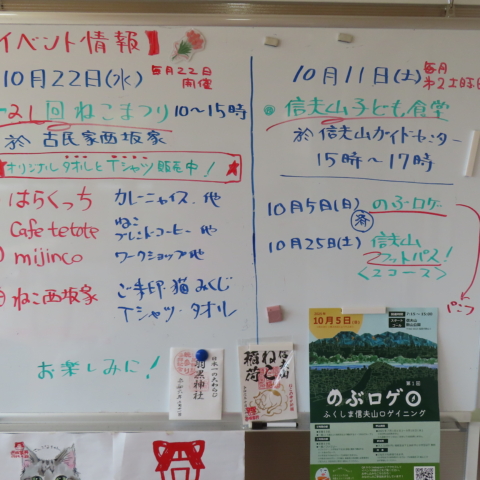 イベント情報】
10月22日(水)
毎月22日
開催
21回 ねこまつり 10〜15時
於 古民家西坂家
オリジナルタオルとTシャツ販売中!
はらくっち カレー・ナイス.他
Cafe tetote ねこ
ブレンドコーヒー 他
mijinco ワークショップ他
ねこ西坂家 ご朱印・猫みくじ
Tシャツ・タオル
お楽しみに!
10月11日(土)
毎月
第2土曜日
信夫山子ども食堂
於 信夫山ガイドセンター
15時〜17時
10月5日(日) のぶロゲ
済
10月25日(土) 信夫山
フットパス!
<2コース>
パンフ
日本一の大わらじ
羽黒神社
信夫山
ねこ
稲荷
10月5日
7:15〜15:00
第1回
のぶロゲ
ふくしま信夫山ロゲイニング